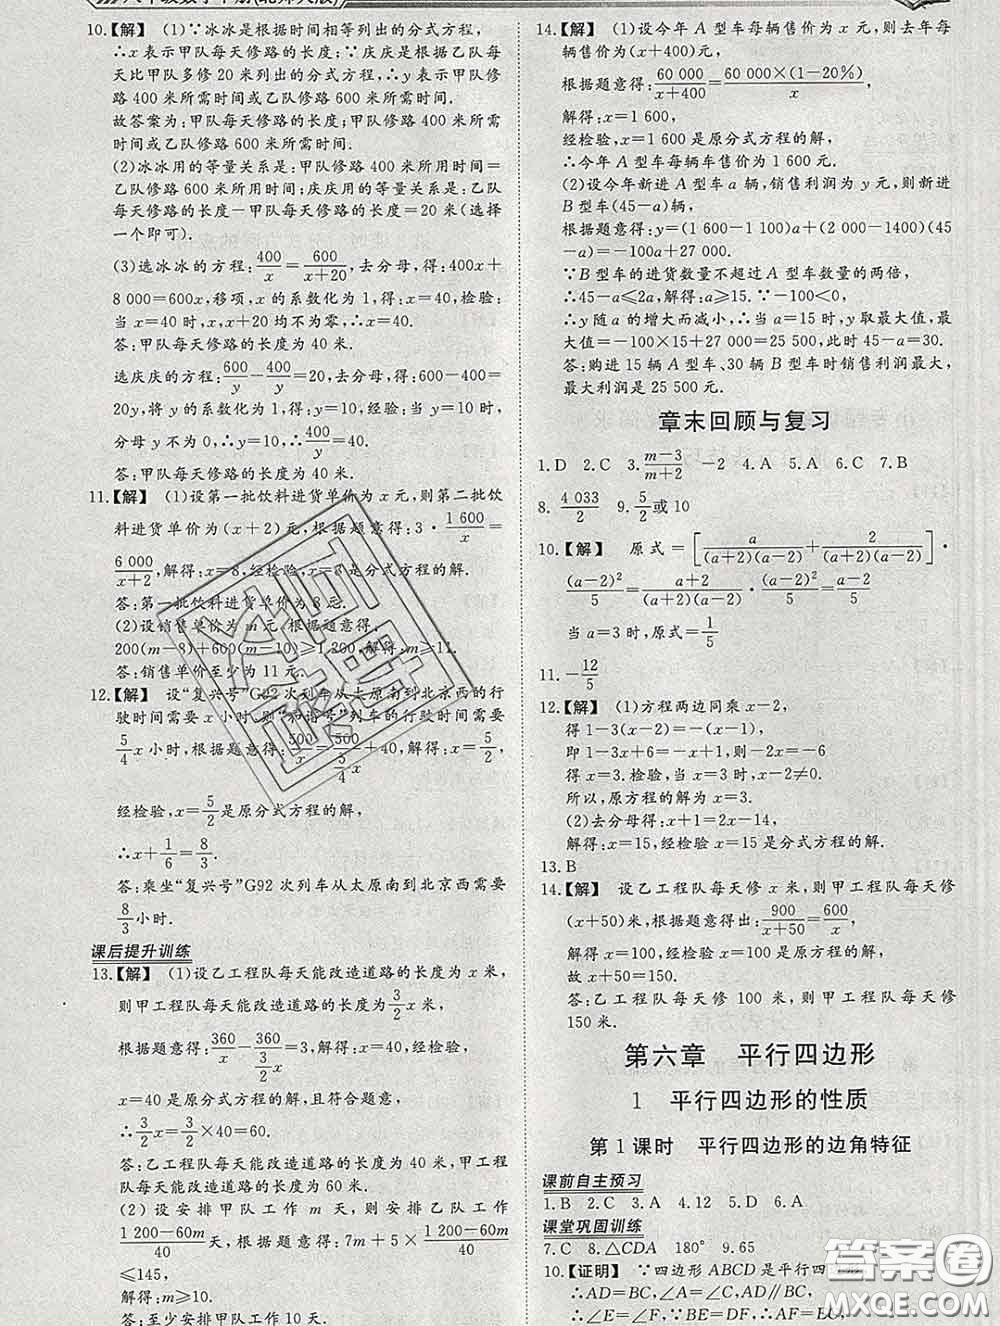 八年级数学下册(北师大版)
10.【解】 (1)∵冰冰是根据时间相等列出的分式方程,
∴x表示甲队每天修路的长度;∵庆庆是根据乙队每
天比甲队多修 20 米列出的分式方程,∴y 表示甲队修
路 400 米所需时间或乙队修路 600 米所需时间.
故答案为:甲队每天修路的长度;甲队修路 400 米所需
时间或乙队修路 600 米所需时间.
(2)冰冰用的等量关系是:甲队修路 400 米所用时间=
乙队修路 600 米所用时间;庆庆用的等量关系是:乙队
每天修路的长度-甲队每天修路的长度=20 米(选择
一个即可).
(3)选冰冰的方程:400/x=600/(x+20),去分母,得:400x+
8 000=600x,移项,x 的系数化为 1,得:x=40,检验:
当 x=40 时,x,x+20 均不为零,∴x=40.
答:甲队每天修路的长度为 40 米.
选庆庆的方程:600/y-400/y=20,去分母,得:600-400=
20y,将 y 的系数化为 1,得:y=10,经验:当 y=10 时,
分母 y 不为 0,∴y=10,∴400/y=40.
答:甲队每天修路的长度为 40 米.
11.【解】 (1)设第一批饮料进货单价为 x 元,则第二批饮
料进货单价为(x+2)元,根据题意得:3·1 600/x=
6 000/(x+2),解得:x=8,经检验,x=8 是分式方程的解.
答:第一批饮料进货单价为 8 元.
(2)设销售单价为 m 元,根据题意得,
200(m-8)+600(m-10)≥1 200,解得:m≥11.
答:销售单价至少为 11 元.
12.【解】 设“复兴号”G92 次列车从太原南到北京西的行
驶时间需要 x 小时,则“和谐号”列车的行驶时间需要
5/4 x 小时,根据题意得:500/x=500/(5/4 x)+40,解得:x=5/2,
经检验,x=5/2是原分式方程的解,
∴x+1/6=8/3.
答:乘坐“复兴号”G92 次列车从太原南到北京西需要
8/3小时.
课后提升训练
13.【解】 (1)设乙工程队每天能改造道路的长度为 x 米,
则甲工程队每天能改造道路的长度为3/2 x 米,
根据题意得:360/x-360/(3/2 x)=3,解得:x=40,
x=40 是原分式方程的解,且符合题意,
∴3/2 x=3/2×40=60.
答:乙工程队每天能改造道路的长度为 40 米,甲工程
队每天能改造道路的长度为 60 米.
(2)设安排甲队工作 m 天,则安排乙队工作
(1 200-60m)/40天,根据题意得:7m+5×(1 200-60m)/40
≤145,
解得:m≥10.
答:至少安排甲队工作 10 天.
14.【解】 (1)设今年 A 型车每辆售价为 x 元,则去年每
辆售价为(x+400)元,
根据题意得:60 000/(x+400)=60 000×(1-20%)/x,
解得:x=1 600,
经检验,x=1 600 是原分式方程的解,
∴今年 A 型车每辆车售价为 1 600 元.
(2)设今年新进 A 型车 a 辆,销售利润为 y 元,则新进
B 型车(45-a)辆,
根据题意得:y=(1 600-1 100)a+(2 000-1400)(45
-a)=-100a+27 000.
∵B 型车的进货数量不超过 A 型车数量的两倍,
∴45-a≤2a,解得:a≥15.∵-100<0,
∴y 随 a 的增大而减小,∴当 a=15 时,y 取最大值,最
大值=-100×15+27 000=25 500,此时 45-a=30.
答:购进 15 辆 A 型车、30 辆 B 型车时销售利润最大,
最大利润是 25 500 元.
章末回顾与复习
1.D 2.C 3.(m-3)/(m+2) -2 4.A 5.A 6.C 7.B
8.4 033/2 9.5/2或 10
10.【解】 原式=[a/((a+2)(a-2))+2/((a+2)(a-2))]·
(a-2)²/5=(a+2)/((a+2)(a-2))·(a-2)²/5=(a-2)/5
当 a=3 时,原式=1/5
11.-12/5
12.【解】 (1)方程两边同乘 x-2,
得 1-3(x-2)=-(x-1),
即 1-3x+6=-x+1,则-2x=-6
得 x=3.检验,当 x=3 时,x-2≠0.
所以,原方程的解为 x=3.
(2)去分母得:x+1=2x-14,
解得:x=15,经检验 x=15 是分式方程的解.
13.B
14.【解】 设乙工程队每天修 x 米,则甲工程队每天修
(x+50)米,根据题意得出:900/(x+50)=600/x,
解得:x=100,经检验得:x=100 是原方程的解,
故 x+50=150.
答:乙工程队每天修 100 米,则甲工程队每天修
150 米.
第六章 平行四边形
1 平行四边形的性质
第 1 课时 平行四边形的边角特征
课前自主预习
1.B 2.C 3.A 4.12 5.D 6.A
课堂巩固训练
7.C 8.△CDA 180° 9.65
10.【证明】 ∵四边形 ABCD 是平行四
∴AD=BC,AD∥BC,
∴∠E=∠F,∴AF=EC,
答案圈
MXQE.COM